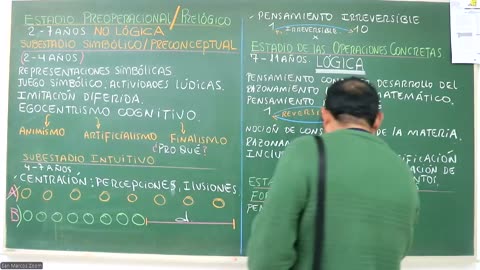 ESTADIO PREOPERACIONAL / PRELÓGICO
2-7 AÑOS NO LÓGICA
SUBESTADIO SIMBÓLICO / PRECONCEPTUAL
(2-4 AÑOS)
REPRESENTACIONES SIMBÓLICAS
JUEGO SIMBÓLICO, ACTIVIDADES LÚDICAS.
IMITACIÓN DIFERIDA.
EGOCENTRISMO COGNITIVO.
ANIMISMO ARTIFICIALISMO FINALISMO
¿PRO QUÉ?
SUBESTADIO INTUITIVO
4-7 AÑOS
• CENTRACIÓN: PERCEPCIONES, ILUSIONES.
A)
B) d
• PENSAMIENTO IRREVERSIBLE
1 IRREVERSIBLE 10
x
ESTADIO DE LAS OPERACIONES CONCRETAS
7-11 AÑOS LÓGICA
PENSAMIENTO DESARROLLO DEL
RAZONAMIENTO MATEMÁTICO.
PENSAMIENTO
1
NOCIÓN DE DE LA MATERIA,
CIÓN DE
San Marcos Zoom